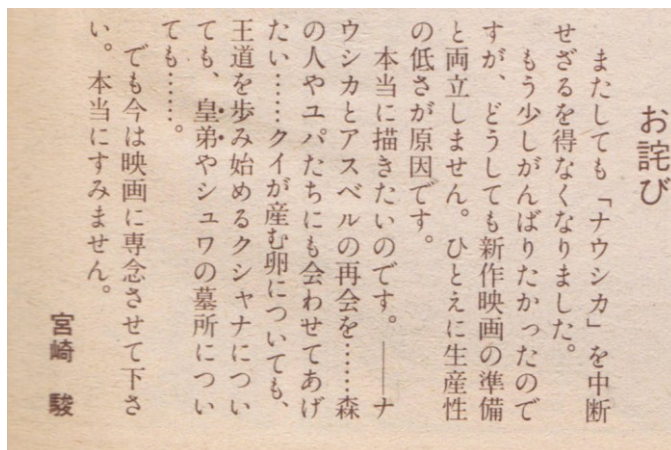 お詫び
またしても「ナウシカ」を中断
せざるを得なくなりました。
もう少しがんばりたかったので
すが、どうしても新作映画の準備
と両立しません。ひとえに生産性
の低さが原因です。
本当に描きたいのです。――ナ
ウシカとアスベルの再会を……森
の人やユパたちにも会わせてあげ
たい……クイが産む卵についても、
王道を歩み始めるクシャナについ
ても、皇弟やシュワの墓所につい
ても……。
でも今は映画に専念させて下さ
い。本当にすみません。
宮崎 駿